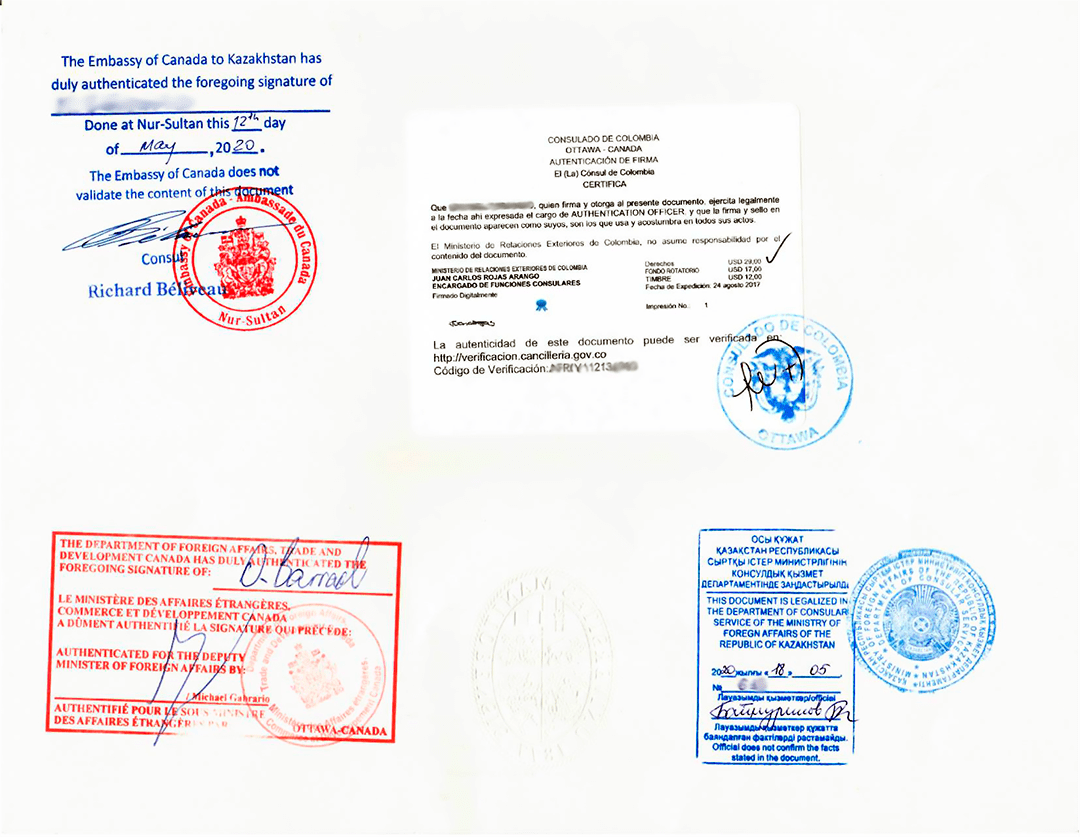 The Embassy of Canada to Kazakhstan has
duly authenticated the foregoing signature of
Done at Nur-Sultan this 12th day
of May, 2020.
The Embassy of Canada does not
validate the content of this document
Consul
Richard Béliveau
Embassy of Canada - Ambassade du Canada
Nur-Sultan
CONSULADO DE COLOMBIA
OTTAWA - CANADA
AUTENTICACIÓN DE FIRMA
El (La) Cónsul de Colombia
CERTIFICA
Que , quien firma y otorga al presente documento, ejercita legalmente
a la fecha ahi expresada el cargo de AUTHENTICATION OFFICER, y que la firma y sello en
el documento aparecen como suyos, son los que usa y acostumbra en todos sus actos.
El Ministerio de Relaciones Exteriores de Colombia, no asume responsabilidad por el
contenido del documento.
MINISTERIO DE RELACIONES EXTERIORES DE COLOMBIA
JUAN CARLOS ROJAS ARANGO
ENCARGADO DE FUNCIONES CONSULARES
Firmado Digitalmente
Derechos USD 29,00
FONDO ROTATORIO USD 17,00
TIMBRE USD 12,00
Fecha de Expedición: 24 agosto 2017
Impresión No.: 1
La autenticidad de este documento puede ser verificada en:
http://verificacion.cancilleria.gov.co
Código de Verificación:
CONSULADO DE COLOMBIA
OTTAWA
THE DEPARTMENT OF FOREIGN AFFAIRS, TRADE AND
DEVELOPMENT CANADA HAS DULY AUTHENTICATED THE
FOREGOING SIGNATURE OF:
LE MINISTÈRE DES AFFAIRES ÉTRANGÈRES,
COMMERCE ET DÉVELOPPEMENT CANADA
A DÛMENT AUTHENTIFIÉ LA SIGNATURE QUI PRÉCÈDE:
AUTHENTICATED FOR THE DEPUTY
MINISTER OF FOREIGN AFFAIRS BY:
/ Michael Gabrario
AUTHENTIFIÉ POUR LE SOUS-MINISTRE
DES AFFAIRES ÉTRANGÈRES PAR
OTTAWA-CANADA
ОСЫ ҚҰЖАТ
ҚАЗАҚСТАН РЕСПУБЛИКАСЫ
СЫРТҚЫ ІСТЕР МИНИСТРЛІГІНІҢ
КОНСУЛДЫҚ ҚЫЗМЕТ
ДЕПАРТАМЕНТІНДЕ ЗАҢДАСТЫРЫЛДЫ
THIS DOCUMENT IS LEGALIZED IN
THE DEPARTMENT OF CONSULAR
SERVICE OF THE MINISTRY OF
FOREGN AFFAIRS OF THE
REPUBLIC OF KAZAKHSTAN
2020 жылғы « 18 » 05
№
Лауазымды қызметкер/official
Лауазымды қызметкер құжатта
баяндалған фактілерді растамайды.
Official does not confirm the facts
stated in the document.
MINISTRY OF FOREIGN AFFAIRS OF THE REPUBLIC OF KAZAKHSTAN
DEPARTMENT OF CONSULAR SERVICE